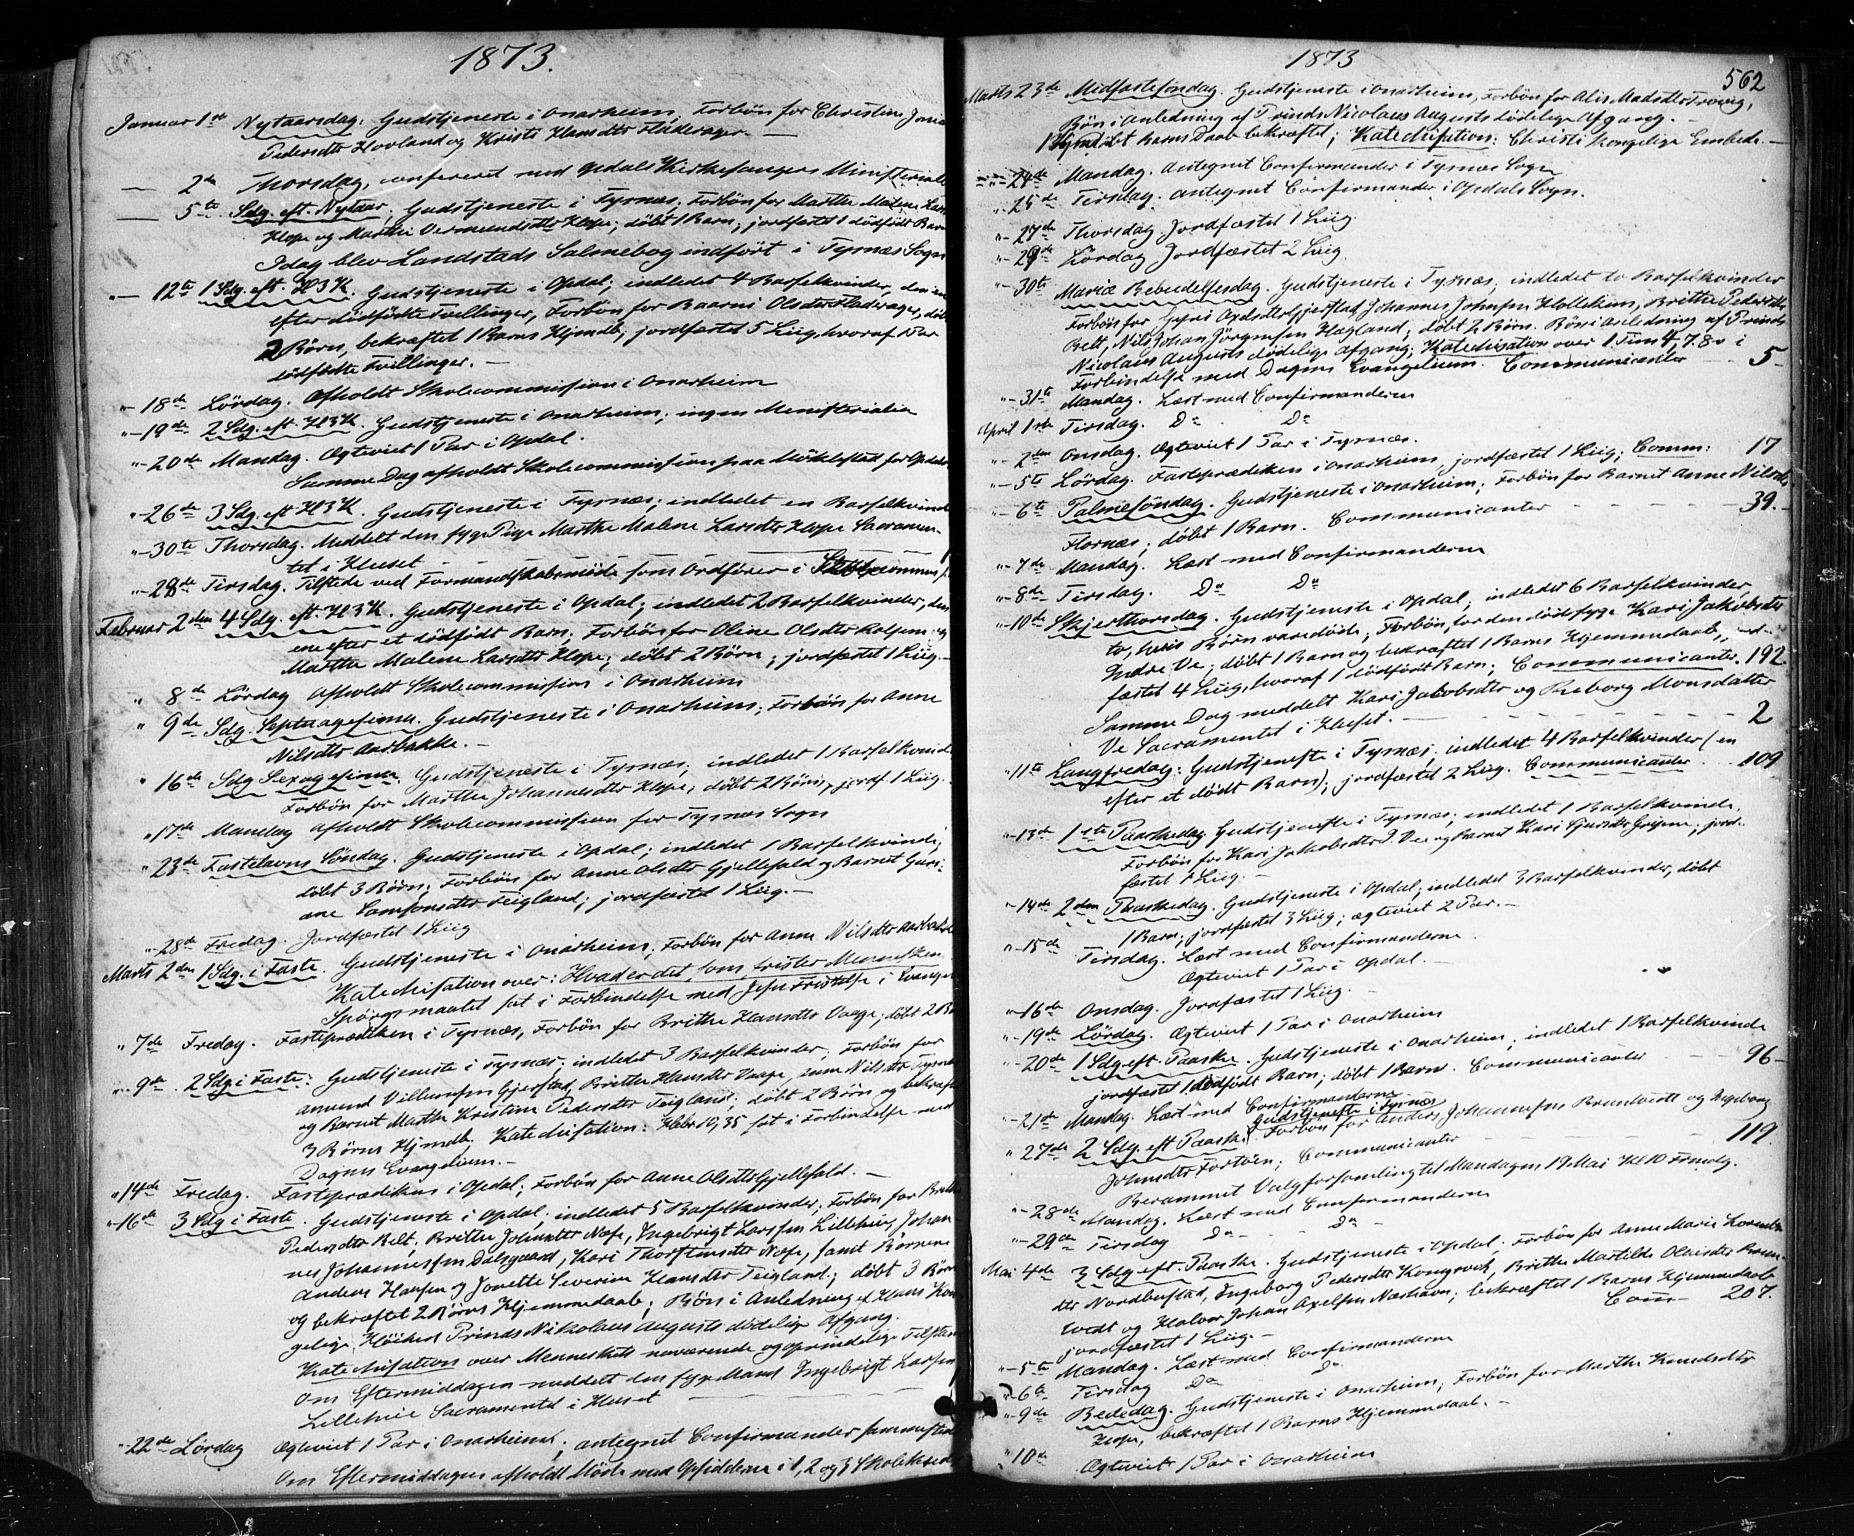 1873.
Januar 1ste Nytaarsdag. Gudstjeneste i Onarheim, Forbøn for Christine Jona
Pedersdtr Hovland og Kristi Hansdtr Flaterager. —
— 2den Thorsdag, confereret med Opdals Kirkesangers Ministerialb
— 5te Sdg. eft. Nytaar. Gudstjeneste i Tysnæs. Forbøn for Marthe Malene Lars
Hope og Marthe Vermundsdtr Hope; døbt 1 Barn; jordfæstet 1 dødfødt Barn
Idag blev Landstads Salmebog indført i Tysnæs Sogn
"— 12te 1 Sdg. eft. H3K. Gudstjeneste i Opdal; indledet 4 Barselkvinder, den ene
efter dødfødte Tvillinger, Forbøn for Baarni Olsdtr Flaterager, døbt
2 Børn, bekræftet 1 Barns Hjmdb; jordfæstet 5 Liig, hvoraf 1 Par
dødfødte Tvillinger. —
"— 18de Lørdag. Afholdt Skolecommission i Onarheim
"— 19de 2 Sdg. eft. H3K. Gudstjeneste i Onarheim; ingen Ministerialia
"— 20de Mandag. Ægteviet 1 Par i Opdal.
Samme Dag afholdt Skolecommission paa Møklestad for Opdals
"— 26de 3 Sdg. eft H3K. Gudstjeneste i Tysnæs; indledet en Barselkvind
"— 30te Thorsdag. Meddelt den syge Pige Marthe Malene Larsdtr Hope Sacramen-
tet i Huset — 1
"— 28de Tirsdag. Tilstede ved Formandskabsmøde som Ordfører i
Februar 2den 4 Sdg. eft. H3K. Gudstjeneste i Opdal; indledet 2 Barselkvinder, den
ene efter et dødfødt Barn. Forbøn for Oline Olsdtr og
Marthe Malene Larsdtr Hope; døbt 2 Børn; jordfæstet 1 Liig. —
" 8de Lørdag afholdt Skolecommission i Onarheim
" 9de Sdg. Septuagesima. Gudstjeneste i Onarheim; Forbøn for Anne
Nilsdtr Aarbakke. —
" 16de Sdg Sexagesima. Gudstjeneste i Tysnæs; indledet 1 Barselkvinde
Forbøn for Marthe Johannesdtr Hope; døbt 2 Børn, jordf. 1 Liig.
" 17de Mandag afholdt Skolecommission for Tysnæs Sogn
" 23de Fastelavns Søndag. Gudstjeneste i Opdal; indledet 1 Barselkvinde;
døbt 3 Børn; Forbøn for Anne Olsdtr Gjellefald og Barnet Guri-
ane Samsonsdtr Teigland; jordfæstet 1 Liig. —
"— 28de Fredag. Jordfæstet 1 Liig
Marts 2den 1 Sdg. i Faste. Gudstjeneste i Onarheim; Forbøn for Anne Nilsdtr Aarbakke
Katechisation over: Hvad er det, som frister Mennesken
Spørgsmaalet sat i Forbindelse med Jesu Fristelse i Evangel
" 7de Fredag. Fasteprædiken i Tysnæs, Forbøn for Brithe Hansdtr Vaage; døbt 2 B
"— 9de 2 Sdg i Faste: Gudstjeneste i Tysnæs; indledet 3 Barselkvinder; Forbøn for
Amund Villumsen Gjerstad, Brithe Hansdtr Vaage, Anne Nilsdtr Tysnæs
og Barnet Marthe Kristine Pedersdtr Teigland; døbt 2 Børn og bekræftet
3 Børns Hjmdb. Katechisation: Hebr 10,35 sat i Forbindelse med
Dagens Evangelium. —
"14de Fredag. Fasteprædiken i Opdal; Forbøn for Anne Olsdtr Gjellefald. —
"—16de 3 Sdg i Faste. Gudstjeneste i Opdal; indledet 5 Barselkvinder; Forbøn for Brithe
Pedersdtr Belt, Brithe Johnsdtr Næse, Ingebrigt Larssen Lillehie, Johan-
nes Johannessen Dalsgaard, Kari Thorstensdtr Næse, samt Børnene
Anders Hansen og Jonette Severine Hansdtr Teigland; døbt 3 Børn
og bekræftet 2 Børns Hjemmedaab; Bøn i Anledning af Hans Kon-
gelige Høihed Prinds Nikolaus Augusts dødelige Afgang.
Katechisation over Menneskets nuværende og oprindelige Tilstan
Om Eftermiddagen meddelt den syge Mand Ingebrigt Larsen
Lillehie Sacramentet i Huset — 1
"—22de Lørdag Ægteviet 1 Par i Onarheim; antegnet Confirmander sammesteds
Om Eftermiddagen afholdt Møde med Opsidderne i 1, 2 og 3 Skolekreds
1873
562
Marts 23de Midfastesøndag. Gudstjeneste i Onarheim, Forbøn for Alis Madsdtr
Bøn i Anledning af Prinds Nicolaus Augusts dødelige Afgang. —
1 Barns Daab bekræftet; Katechisation: Christi kongelige Embede. —
"— 24de Mandag. Antegnet Confirmander i Tysnæs Sogn
" 25de Tirsdag. antegnet Confirmander i Opdals Sogn.
"— 27de Thorsdag. Jordfæstet 1 Liig
"— 29de Lørdag Jordfæstet 2 Liig.
"— 30te Mariæ Bebudelsesdag. Gudstjeneste i Tysnæs; indledet to Barselkvinder
Forbøn for Axelsdtr Gjerstad, Johannes Johnsen Hollekim, Brithe Pedersdtr
Belt, Nils Johan Jørgensen Hagland; døbt 2 Børn. Bøn i Anledning af Prinds
Nicolaus Augusts dødelige Afgang; Katechisation over 1 Tim 4, 7.8 i
Forbindelse med Dagens Evangelium. Communicanter — 5
"— 31te Mandag. Læst med Confirmanderne
April 1ste Tirsdag. Do Do
"— 2den Onsdag. Ægteviet 1 Par i Tysnæs.
"— 5te Lørdag. Fasteprædiken i Onarheim, jordfæstet 1 Liig; Comm: 17
"— 6te Palmesøndag. Gudstjeneste i Onarheim; Forbøn for Barnet Anne Nilsdtr
Flornæs; døbt 1 Barn. Communicanter — — — 39.
"— 7de Mandag. Læst med Confirmanderne
"— 8de Tirsdag. Do Do
"— 10de Skjærthorsdag. Gudstjeneste i Opdal; indledet 6 Barselkvinder,
to, hvis Børn vare døde; Forbøn for den dødssyge Kari Jakobsdtr
Indre Ve; døbt 1 Barn og bekræftet 1 Barns Hjemmedaab, jord-
fæstet 4 Liig, hvoraf 1 dødfødt Barn; Communicanter. 192
Samme Dag meddelt Kari Jakobsdtr og Reborg Monsdatter
Ve Sacramentet i Huset. — — — 2
"11te Langfredag: Gudstjeneste i Tysnæs; indledet 4 Barselkvinder (en
efter et dødt Barn); jordfæstet 2 Liig. Communicanter — 109
"— 13de 1ste Paaskedag. Gudstjeneste i Tysnæs; indledet 1 Barselkvinde,
Forbøn for Kari Jakobsdtr I. Ve og Barnet Kari; jord-
fæstet 1 Liig. —
"—14de 2den Paaskedag. Gudstjeneste i Opdal; indledet 3 Barselkvinder, døbt
1 Barn; jordfæstet 3 Liig; ægteviet 2 Par. —
"—15de Tirsdag. Læst med Confirmanderne.
Ægteviet 1 Par i Opdal. —
"—16de Onsdag. Jordfæstet 1 Liig. —
"—19de Lørdag. Ægteviet 1 Par i Onarheim
"—20de 1 Sdg. eft. Paaske. Gudstjeneste i Onarheim; indledet 1 Barselkvinde
jordfæstet 1 dødfødt Barn; døbt 1 Barn. Communicanter — 96 —
"—21de Mandag. Læst med Confirmanderne
Gudstjeneste i Tysnæs
"27de 2 Sdg. eft Paaske. Forbøn for Anders Johannessen Bruntveit og Ingeborg
Johnsdtr Fortøen; Communicanter — — 119.
Berammet Valgforsamling til Mandagen 19 Mai Kl 10 Formdg.
"— 28de Mandag. Læst med Confirmanderne
"— 29de Tirsdag Do — Do —
Mai 4de 3 Sdg. eft. Paaske. Gudstjeneste i Opdal; Forbøn for Anne Marie Lorends-
dtr Nordbustad, Ingeborg Pedersdtr Kongsvik, Brithe Marthilde Olaisdtr
tvedt og Halvor Johan Axelsen Næshavn; bekræftet 1 Barns Hjemmedaab
jordfæstet 1 Liig. — Com — 207.
"— 5te Mandag. Læst med Confirmanderne
"— 6te Tirsdag Do Do
"— 9de Bededag. Gudstjeneste i Onarheim; Forbøn for Marthe Knudsdtr
Hope, bekræftet 1 Barns Hjemmedaab. —
"10de Ægteviet 1 Par i Onarheim